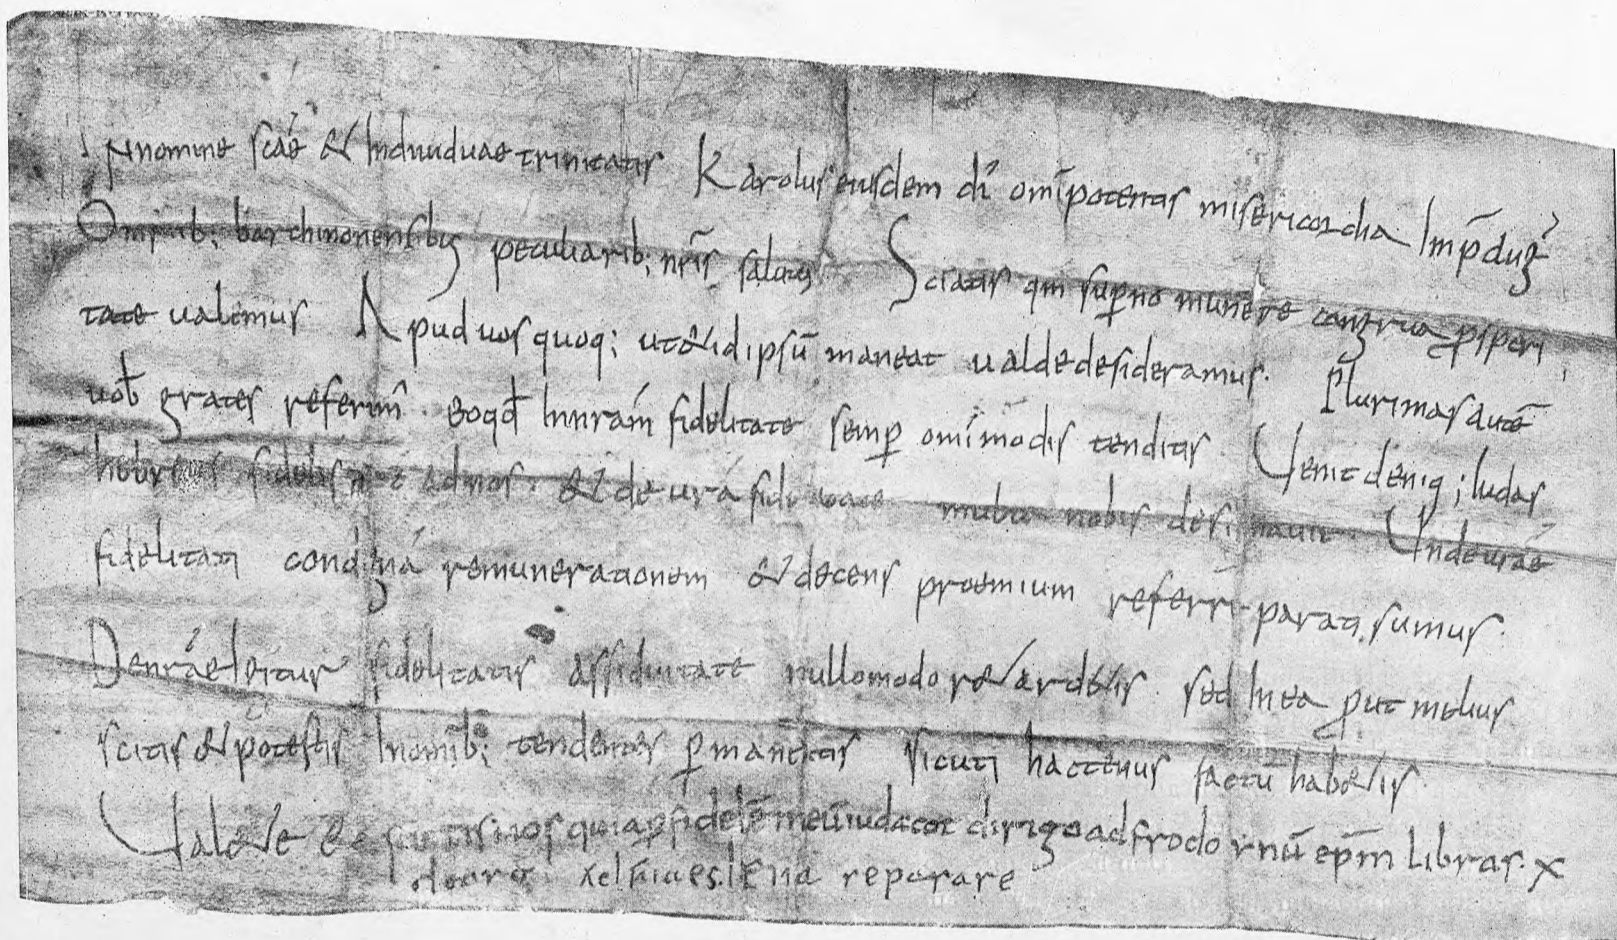 In nomine scae et individuae trinitatis Karolus eiusdem di omipotentis misericordia Imp aug
Omnib; barchinonensibus peculiarib; nris salutem Sciatis qm superno munere congrua prosperi
tate valemus Apud vos quoq; ut et id ipsu maneat valde desideramus. Plurimas aute
vob grates referim eo qd in nram fidelitate semp omimodis tenditis Venit deniq; iudas
hebreus fidelis nr ad nos. et de vra fidelitate multa nobis designavit Unde vrae
fidelitati condigna remunerationem et decens proemium referri parati sumus.
De nrae igitur fidelitatis assiduitate nullomodo retardetis sed in ea prout melius
scitis et potestis in omib; tendentes permaneatis sicuti hactenus factu habetis
Valete et sciatis vos quia per fidele meu iudacot dirigo ad frodoinu epm libras x
de argento ad suae eclesiae reparare